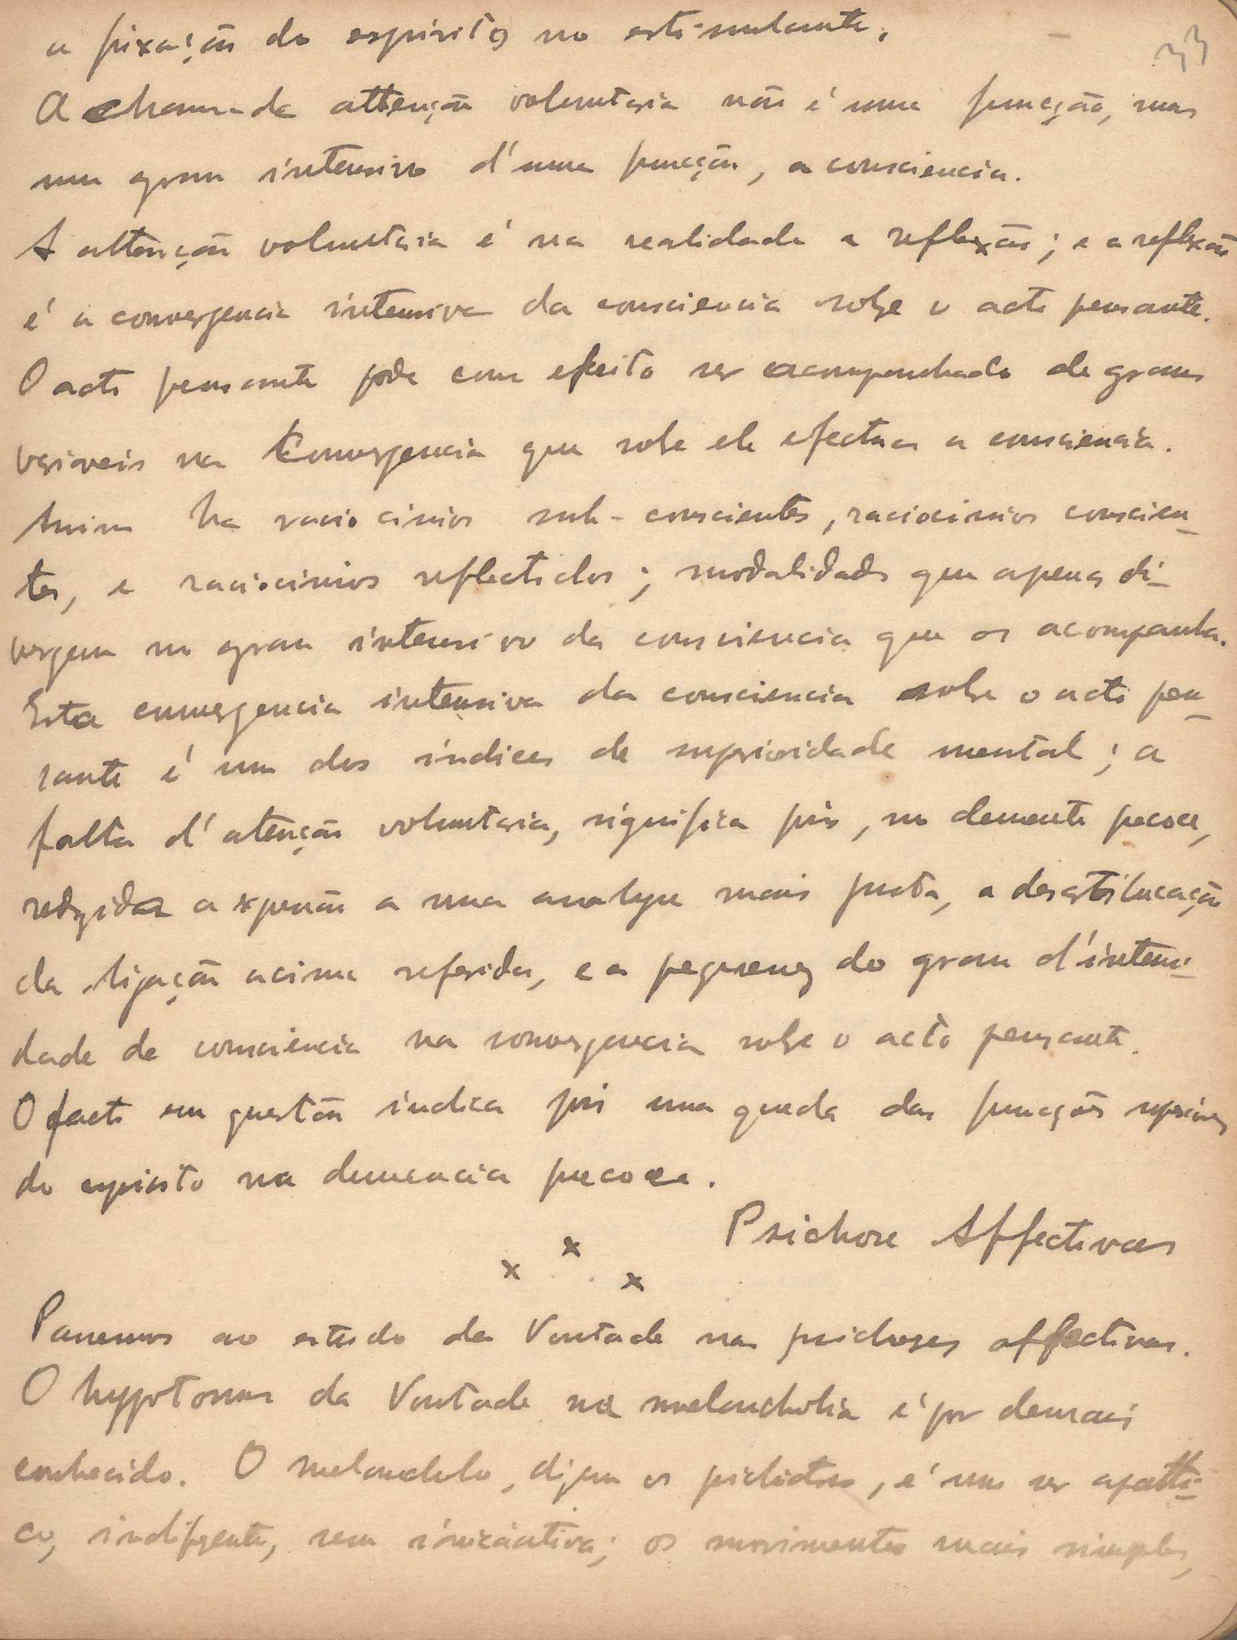 33
a fixação do espirito no estimulante.
A chamada attenção voluntaria não é uma funcção, mas
um grau intensivo d'uma funcção, a consciencia.
A attenção voluntaria é na realidade a reflexão; e a reflexão
é a convergencia intensiva da consciencia sobre o acto pensante.
O acto pensante pode com efeito ser acompanhado de graus
variaveis na convergencia que sobre ele efectua a consciencia.
Assim ha raciocinios sub-conscientes, raciocinios conscien-
tes, e raciocinios reflectidos; modalidades que apenas di-
vergem no grau intensivo da consciencia que os acompanha.
Esta convergencia intensiva da consciencia sobre o acto pen-
sante é um dos indices de superioridade mental; a
falta d'atenção voluntaria, significa pois, no demente precoce,
redusida a expressão a uma analyse mais justa, a desarticulação
da ligação acima referida, e a pequenez do grau d'intensi-
dade de consciencia na convergencia sobre o acto pensante.
O facto em questão indica pois uma queda das funcções superiores
do espirito na demencia precoce.
Psichoses Affectivas
x x x
Passemos ao estudo da Vontade nas psichoses affectivas.
O hypotonus da Vontade na melancholia é por demais
conhecido. O melancholico, dizem os psichiatras, é um ser apathi-
co, indifrente, sem iniciativa; os movimentos mais simples,